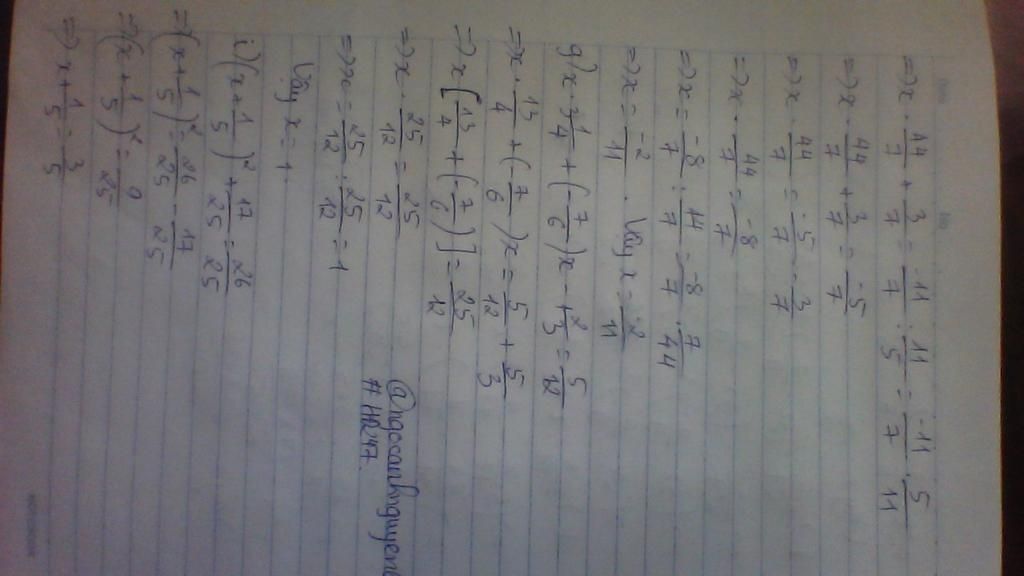 => x · 44/7 + 3/7 = -11/7 : 11/5 = -11/7 · 5/11
=> x · 44/7 + 3/7 = -5/7
=> x · 44/7 = -5/7 - 3/7
=> x · 44/7 = -8/7
=> x = -8/7 : 44/7 = -8/7 · 7/44
=> x = -2/11 . Vậy x = -2/11
g) x · 3 1/4 + (-7/6)x - 1 2/3 = 5/12
=> x · 13/4 + (-7/6)x = 5/12 + 5/3
=> x [13/4 + (-7/6)] = 25/12
=> x · 25/12 = 25/12
=> x = 25/12 : 25/12 = 1
Vậy x = 1.
@ngocanhnguyen
#HQ47
i) (x + 1/5)² + 17/25 = 26/25
=> (x + 1/5)² = 26/25 - 17/25
=> (x + 1/5)² = 9/25
=> x + 1/5 = 3/5